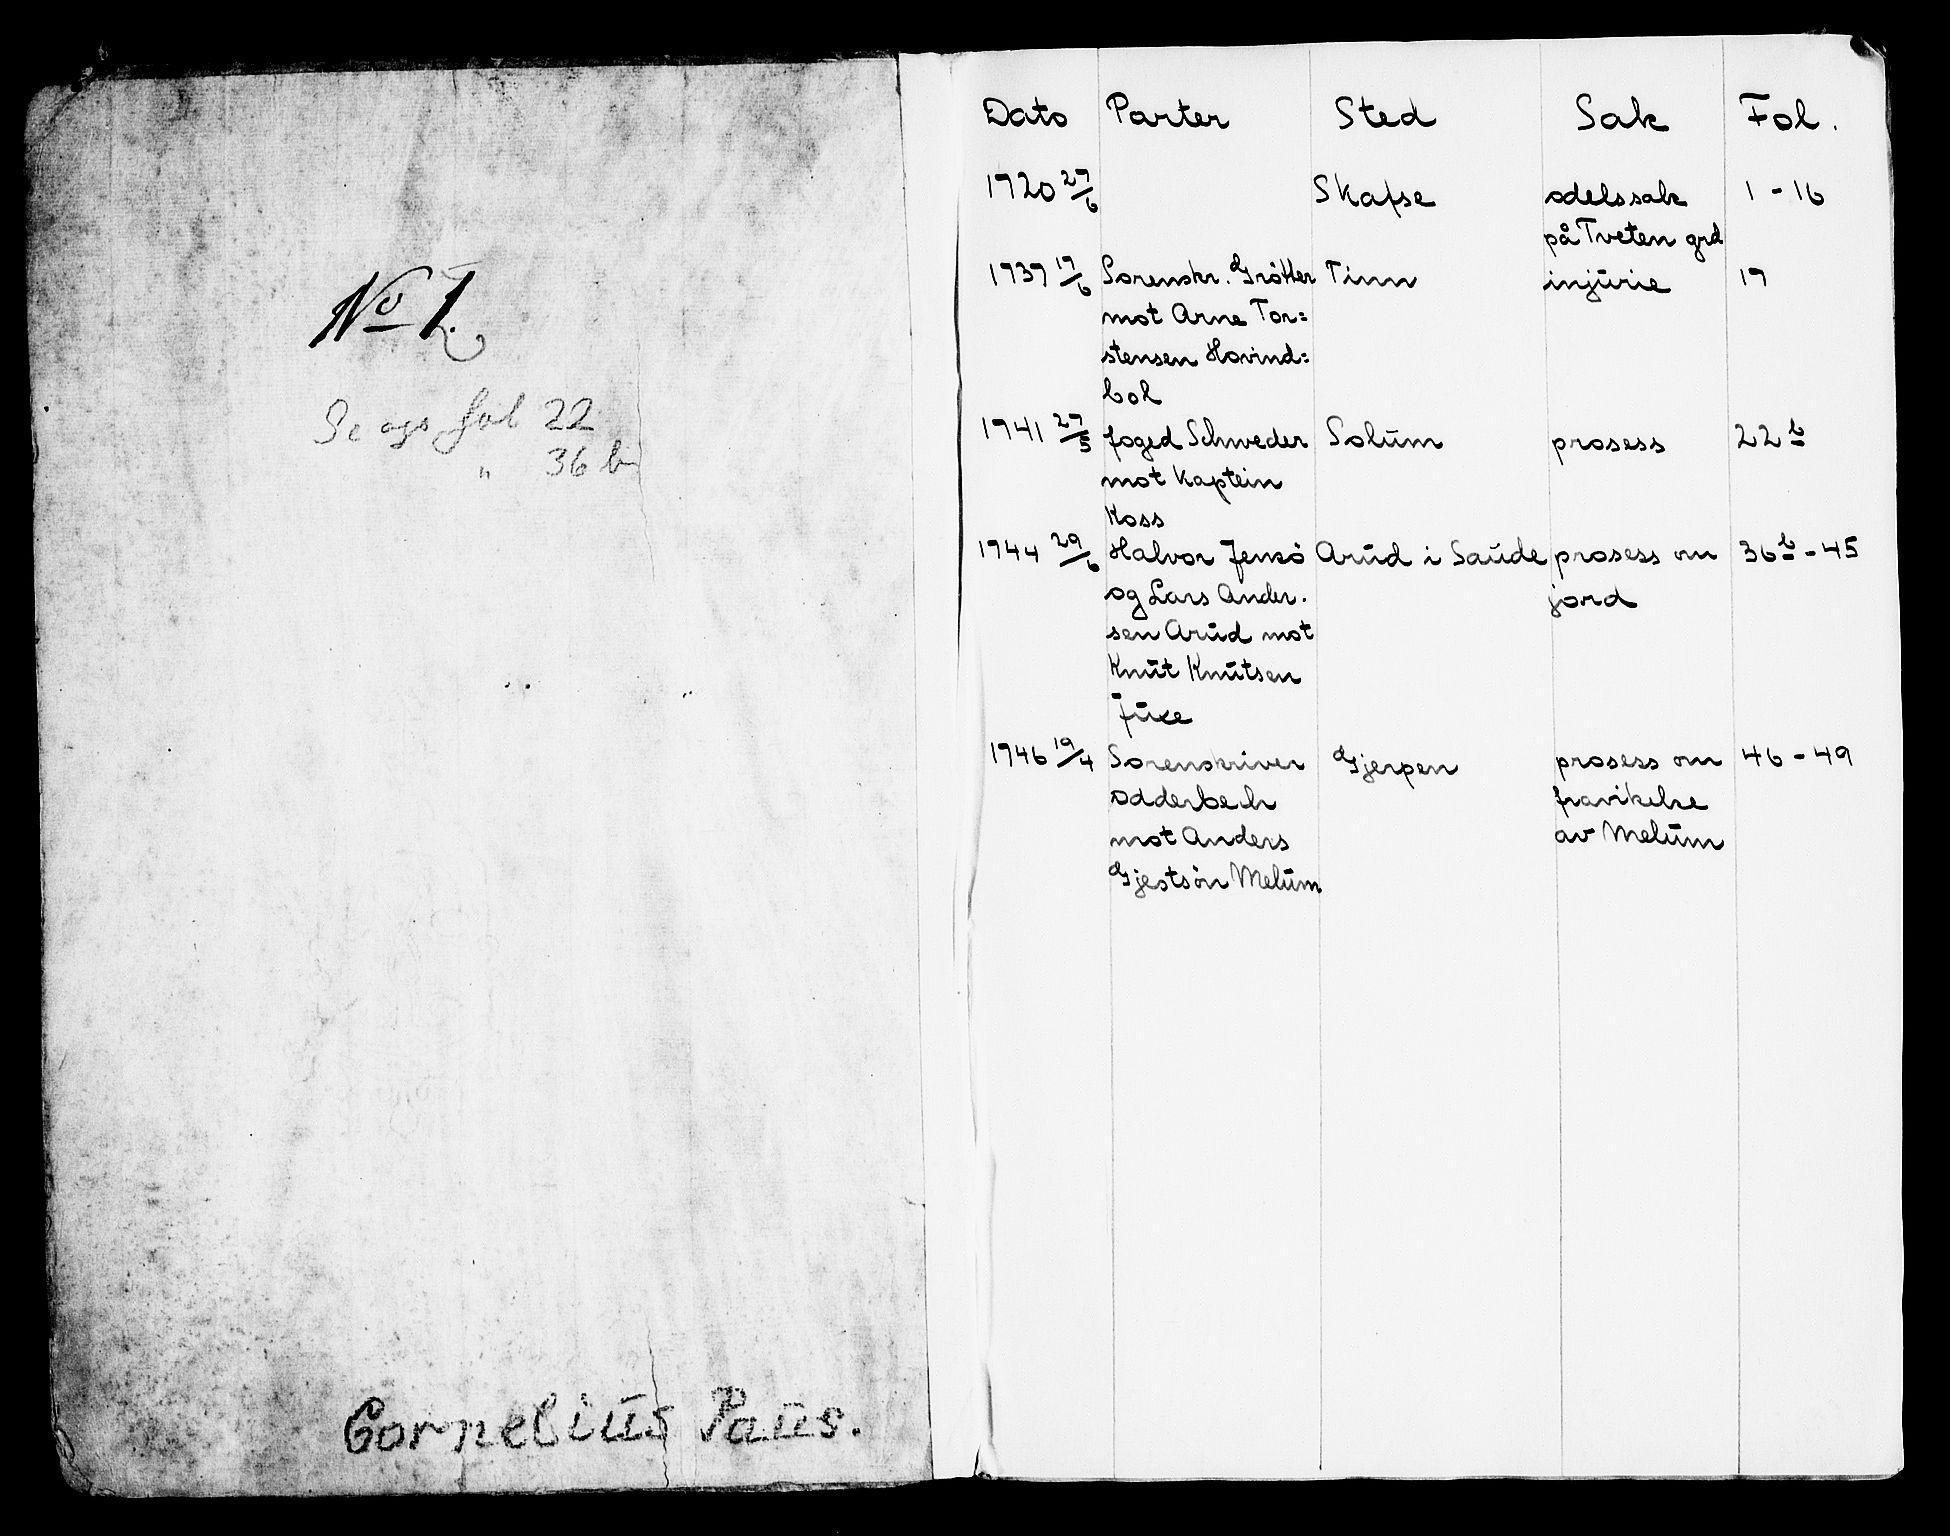 No 1.
Se ogs fol 22
" 36 b
Cornelius Paus.
Dato Parter Sted Sak Fol.
1720 27/6 Skafse odelssak 1 - 16
på Tveten grd
1737 17/6 Sorenskr. Grötter Tinn injurie 17
mot Arne Tor=
stensen Hovind=
bol
1741 27/5 foged Schweder Solum prosess 22 b
mot Kaptein
Koss
1744 29/6 Halvor Jensö Arud i Saude prosess om 36 b - 45
og Lars Ander. jord
sen Arud mot
Knut Knutsen
Juxe
1746 19/4 Sorenskriver Gjerpen prosess om 46 - 49
Odderbech fravikelse
mot Anders av Melum
Gjestsön Melum